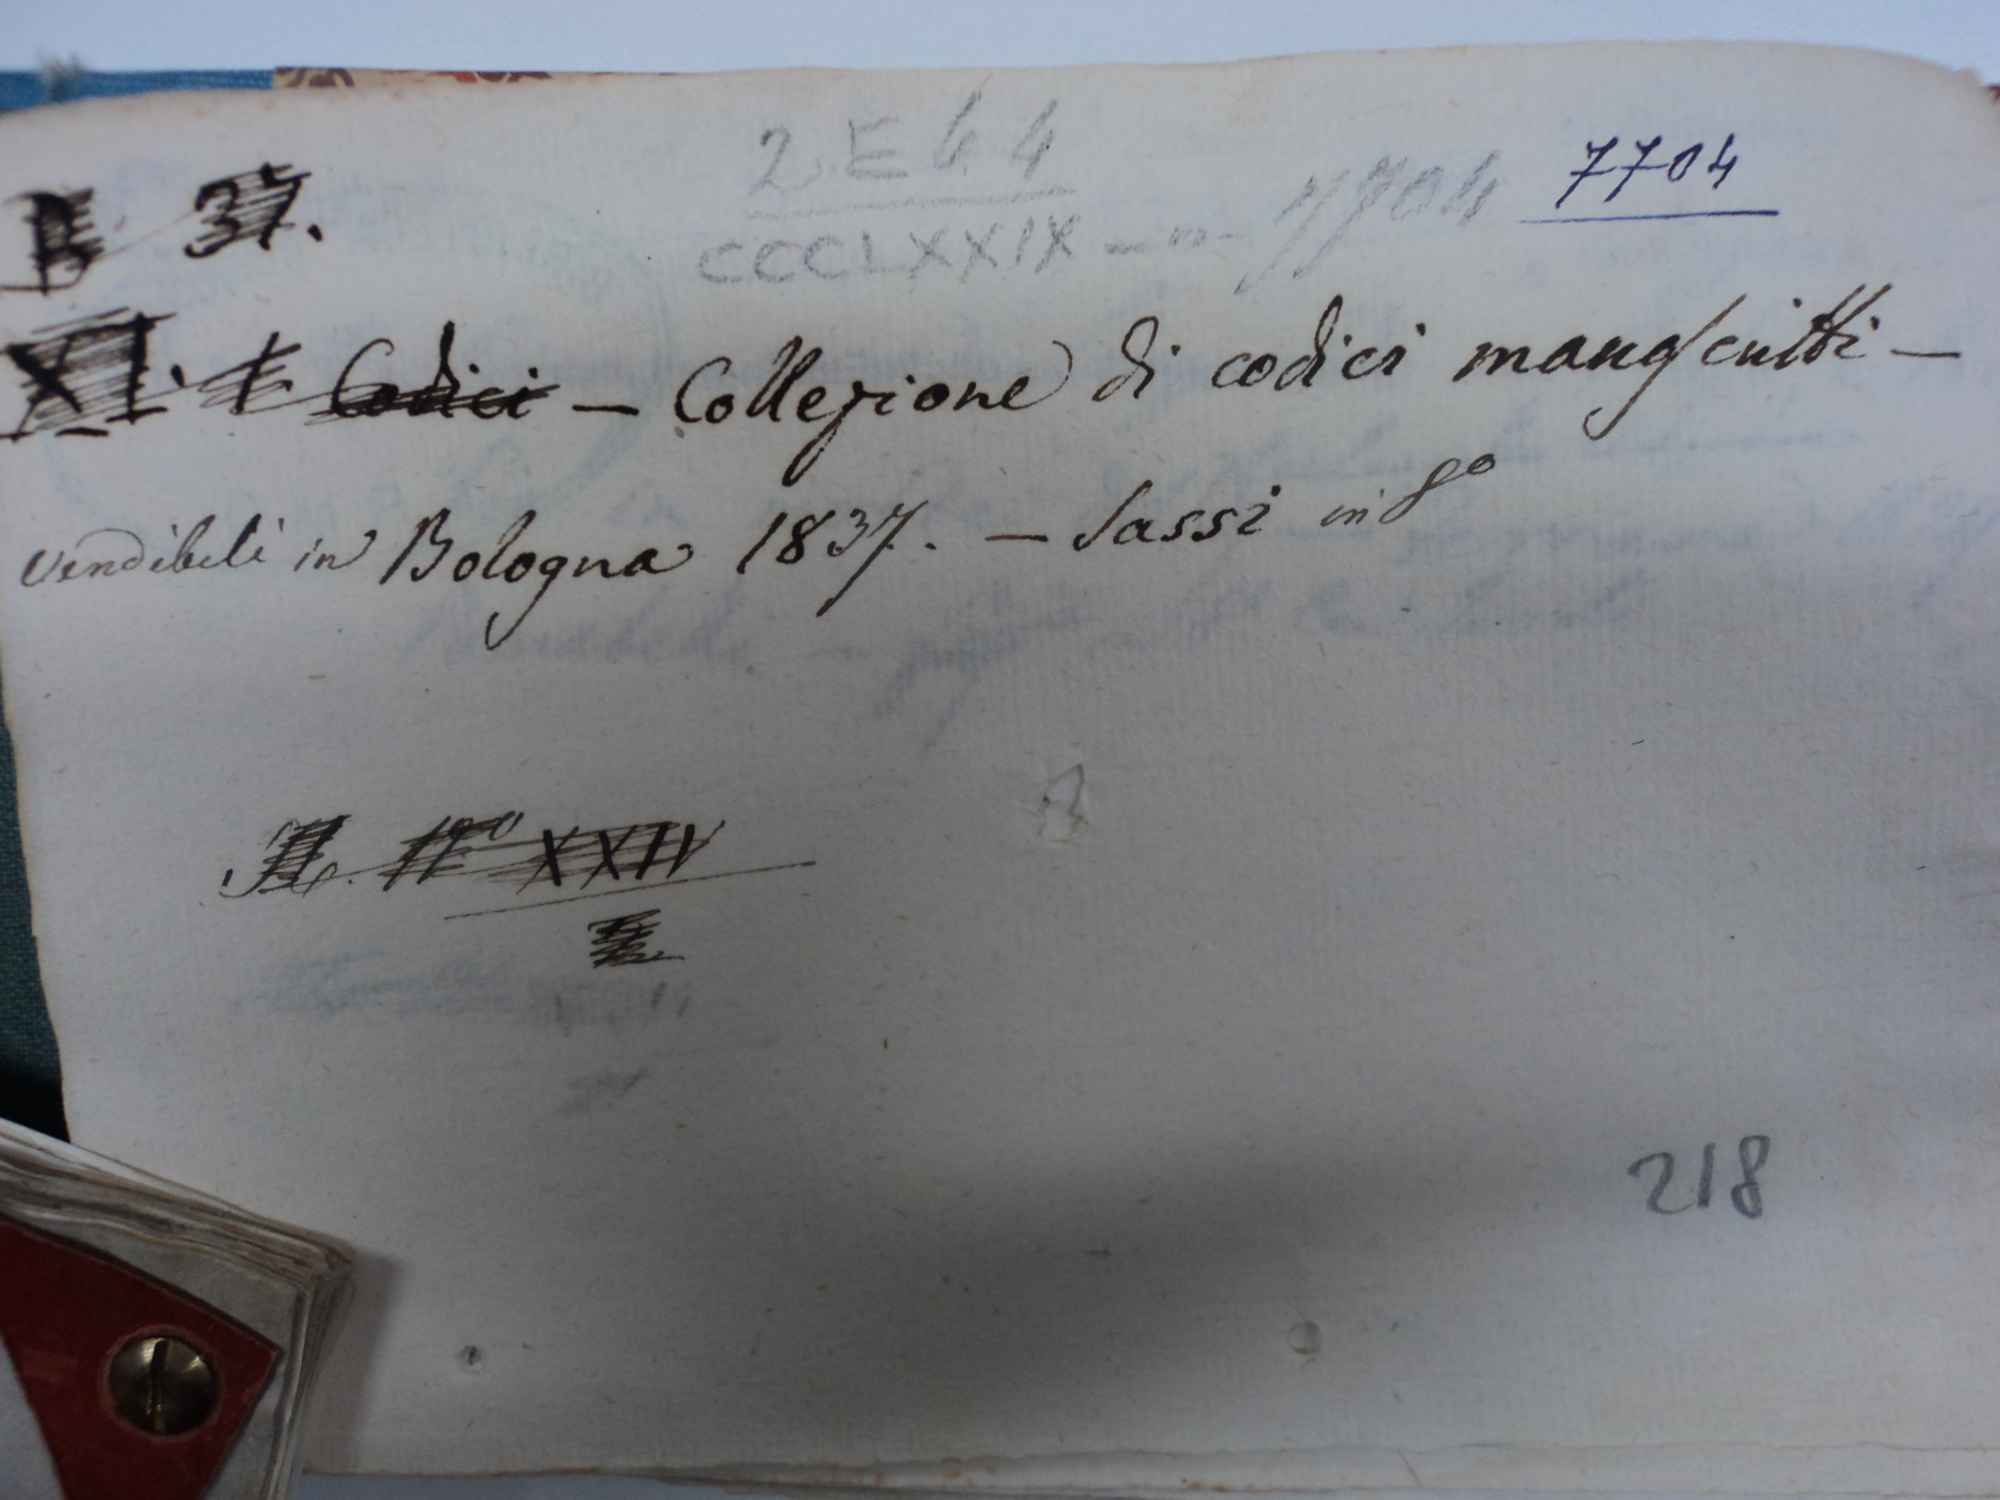 2 E 44
B 37.
7704
CCCLXXIX - " - 7704
XI. Codici - Collezione di codici manoscritti -
vendibili in Bologna 1837. - Sassi in 8º
XXIV
218